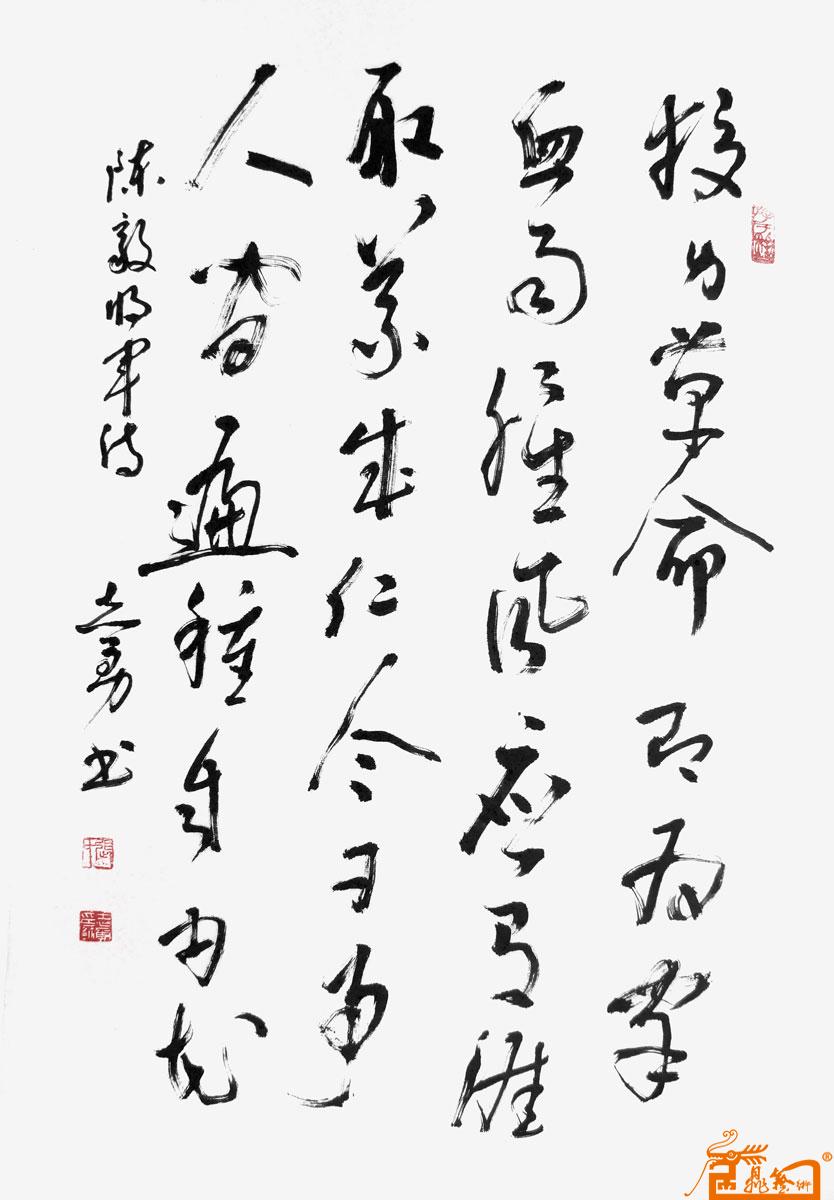 投身革命即为家
血雨腥风应有涯
取義成仁今日事
人间遍种自由花
陈毅将军诗
志勇书